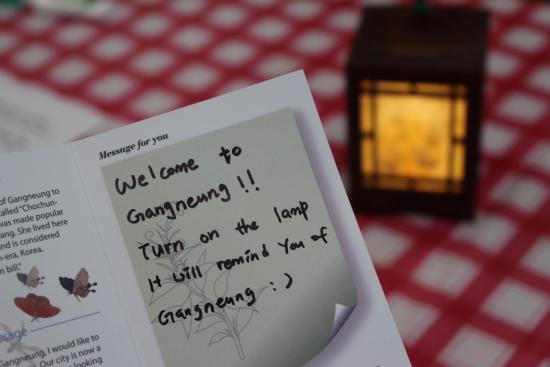 Message for you
Welcome to
Gangneung !!
Turn on the lamp
It will remind you of
Gangneung :)
of Gangneung to
called "Chochun-
was made popular
ang. She lived here
nd is considered
n-era, Korea.
n bill."
ssage
Gangneung, I would like to
Our city is now a
looking